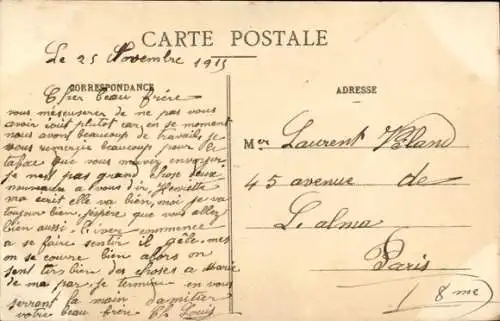 CARTE POSTALE
Le 25 Novembre 1915
CORRESPONDANCE
Cher beau frère
vous m'escuserer de ne pas vous
avoir écrit plutot car, en se moment
nous avont beaucoup de travaile, je
vous remercie beaucoup pour le
tabac que vous m'avez envoyer
je n'est pas quand chose deux
nouveaux a vous dir, Henriette
ma ecrit elle va bien, moi je va
toujour bien, j'espère que vous allez
bien aussi. l'iver commence
a se faire sentir il gêle, mes
on se couvre bien alors on
sent tirs bien des choses a Marie
de ma par, je termine en vous
serrant la main d'amitier
votre beau frère Louis
ADRESSE
Mer Laurent
45 avenue de
L'alma
Paris
(8me)